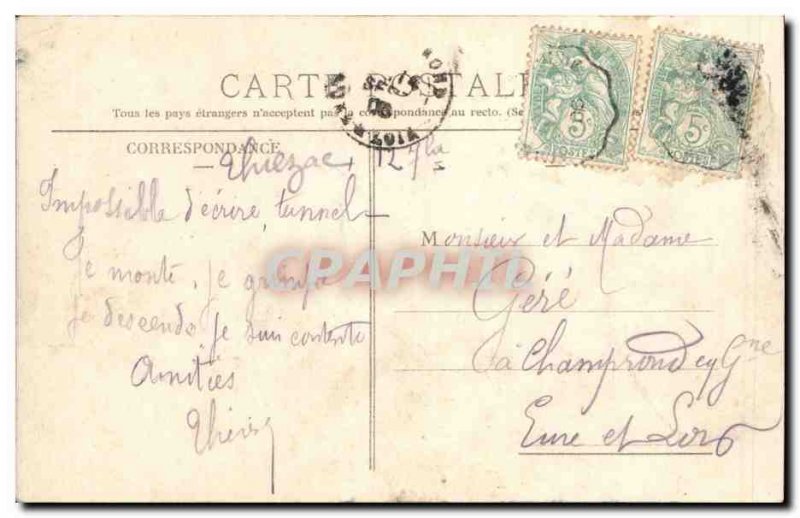 CARTE POSTALE
Tous les pays étrangers n'acceptent pas la correspondance au recto. (Se
CORRESPONDANCE
Thiézac, 12 7bre
Impossible d'écrire, tunnel
je monte, je grimpe
je descends je suis contente
Amitiés
Thérèse
5c
POSTES
5c
POSTES
Monsieur et Madame
Géré
à Champrond en Gne
Eure et Loir
CPAPHIL